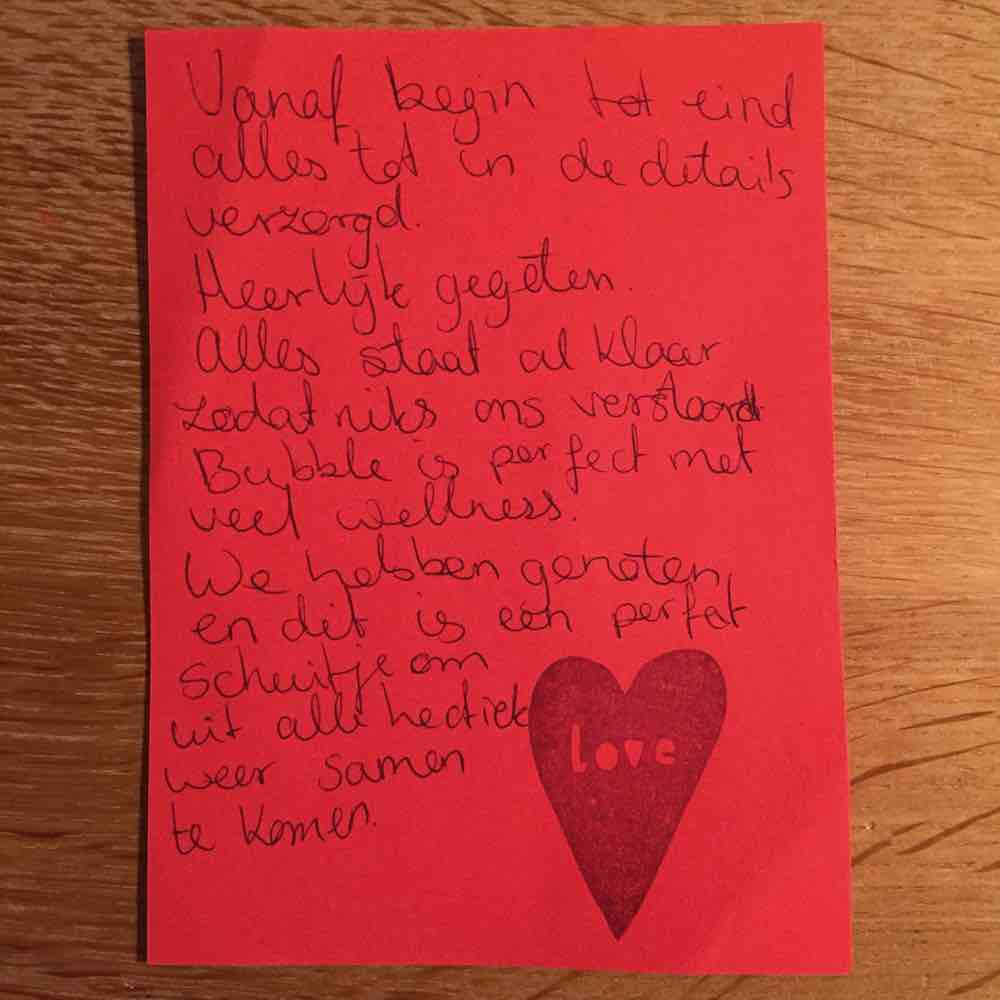 Vanaf begin tot eind
alles tot in de details
verzorgd.
Heerlijk gegeten.
Alles staat al klaar
zodat niks ons verstoord
Bubble is perfect met
veel wellness.
We hebben genoten,
en dit is een perfect
schuitje om
uit alle hectiek
weer samen
te komen.
love